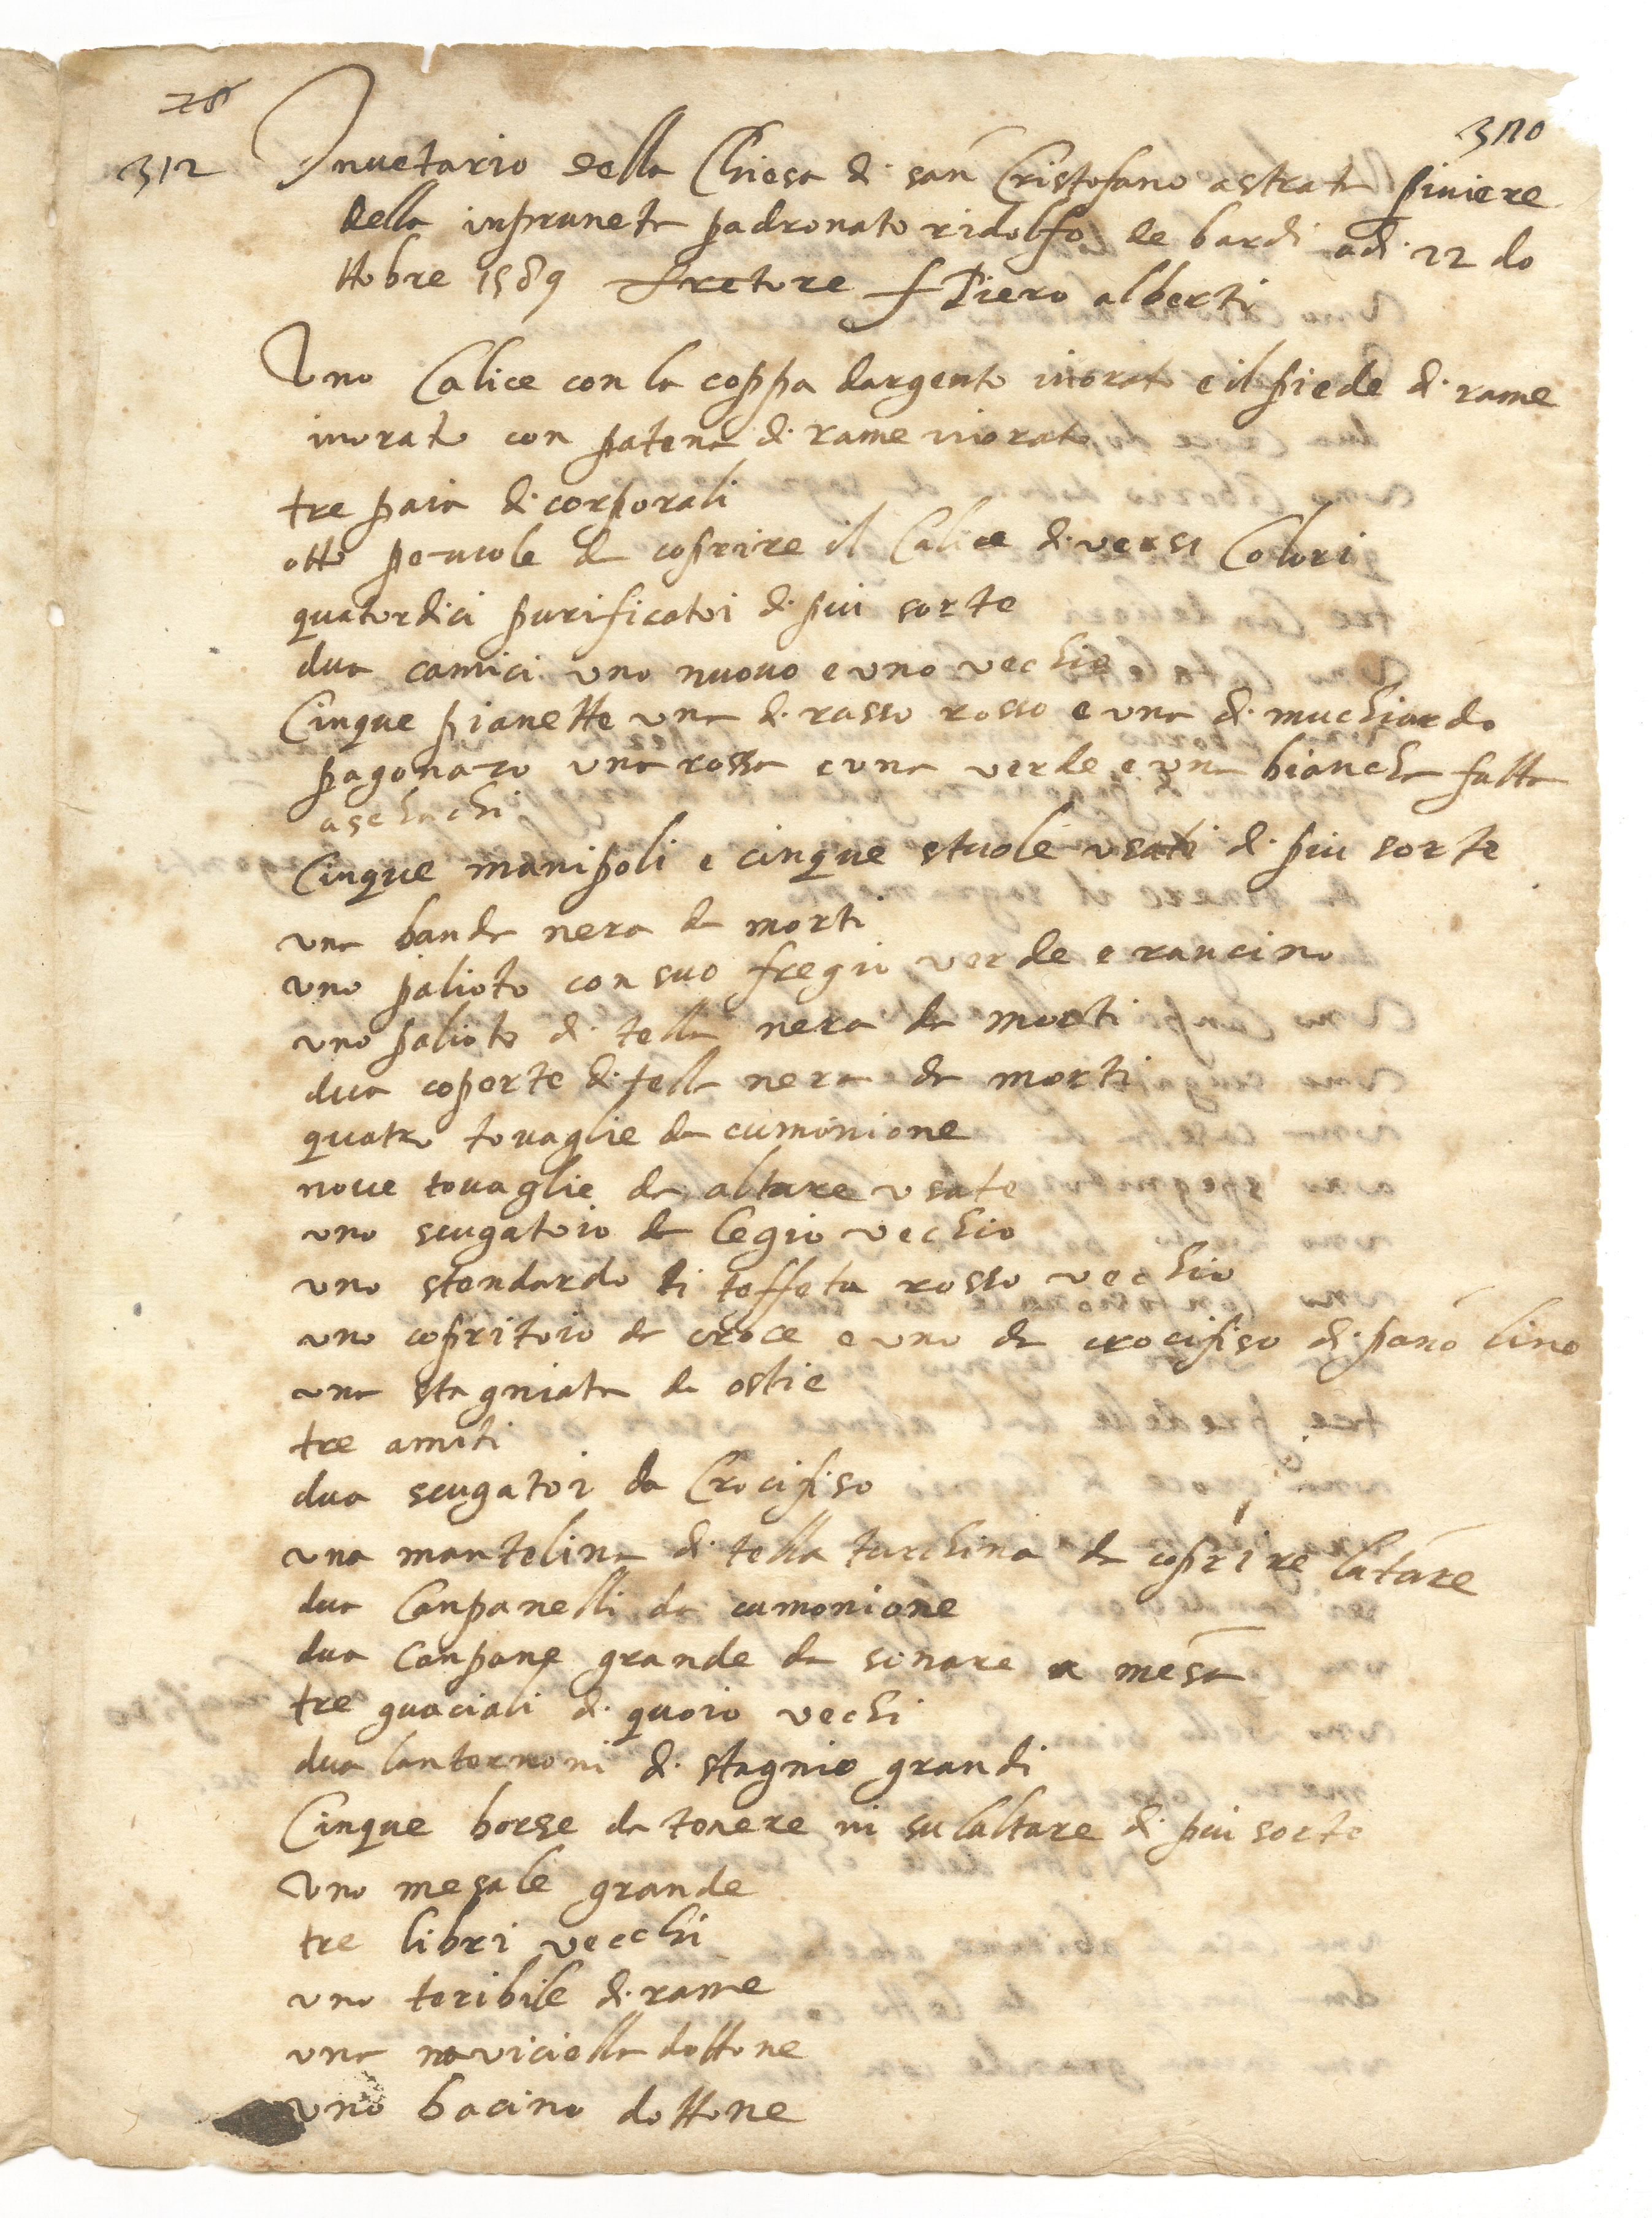 28
312
3110
Inuetario della Chiesa di san Cristofano astrata piuiere
della inpruneta padronato ridolfo de bardi adi 22 do
ttobre 1589 rettore f Piero alberti
Uno Calice con la coppa dargento inorato e il piede di rame
inorato con patena di rame inorato
tre paia di corporali
otto pezuole da coprire il Calice diuersi Colori
quatordici purificatoi di piu sorte
dua camici uno nuouo e uno vechio
Cinque pianette una di raso rosso e una di muchiardo
pagonazo una rossa e una verde e una biancha fatta
aschachi
Cinque manipoli e cinque stuole usati di piu sorte
una banda nera da morti
uno palioto con suo fregii verde e rancino
uno palioto di tella nera da morti
dua coperte di tella nera da morti
quatro touaglie da cumunione
noue touaglie da altare usate
uno scugatoio da legio vechio
uno stendardo di teffeta rosso vechio
uno copritoio da croce e uno da crocifiso di pano lino
una stagniata da ostie
tre amiti
dua scugatoi da Crocifiso
una mantelina di tella turchina da coprire latare
dua Canpanelli da cumonione
dua Canpane grande da sonare a mesa
tre guaciali di quoio vechi
dua lanternoni di stagnio grandi
Cinque borse da tenere in su laltare di piu sorte
Uno mesale grande
tre libri vecchi
uno teribile di rame
una naviciella dottone
uno bacino dottone